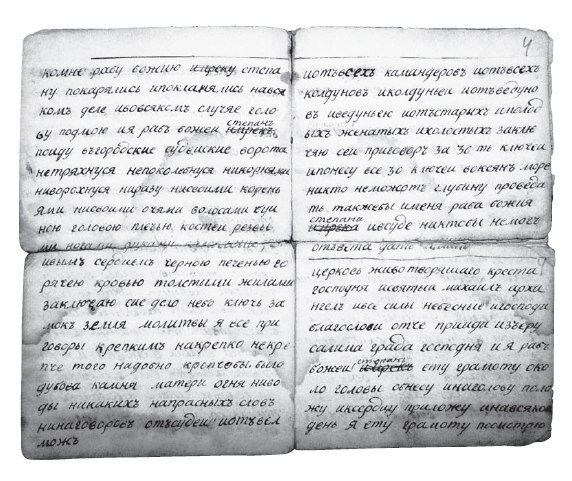 4
комне рабу божию имреку степа
ну покарялись ипокланялись нався
комъ деле ивовсякомъ случае голо
ву подмою ия рабъ божеи степанъ имрекъ
пойду въгородские судейские ворота
нетряхнуся непоколебнуся никорнями
ниворохнуся ниразу нисвоими корень
ями нисвоими очями волосами буи
ною головою печью костеи резвы
ми ногами руками
ивымъ сердцемъ черною печенью го
рячею кровью толстыми жилами
заключаю сие дело небо ключъ за
мокъ земля молитвы я все при
говоры крепкимъ накрепко некре
пче того надобно крепчебы было
дубова камня матери огня ниво
ды никакихъ напрасныхъ словъ
нинаговоровъ отсудеи иотувел
можъ
иотъвсехъ камандеровъ иотъвсехъ
колдуновъ иколдуньеи иотъведуно
въ иведуньею иотъстарихъ имолод
ыхъ женатыхъ ихолостыхъ заклю
чяю сеи приговоръ за 30 ть ключеи
ипонесу все 30 ключеи вокеянъ море
никто неможотъ глубину проведа
ть такжебы именя раба божия
степана имрека ивсуде никтобы немогъ
отъвета дать
церковь животворящаго креста
господня исвятыи михаилъ архан
нгелъ ивсе силы небесные игосподи
благослови отче прииди изъеру
салима града господня и я рабъ
божеи степанъ имрекъ сту грамоту око
ло головы обнесу инаголову поло
жу иксердцу приложу инавсякои
день я сту грамоту посмотрю